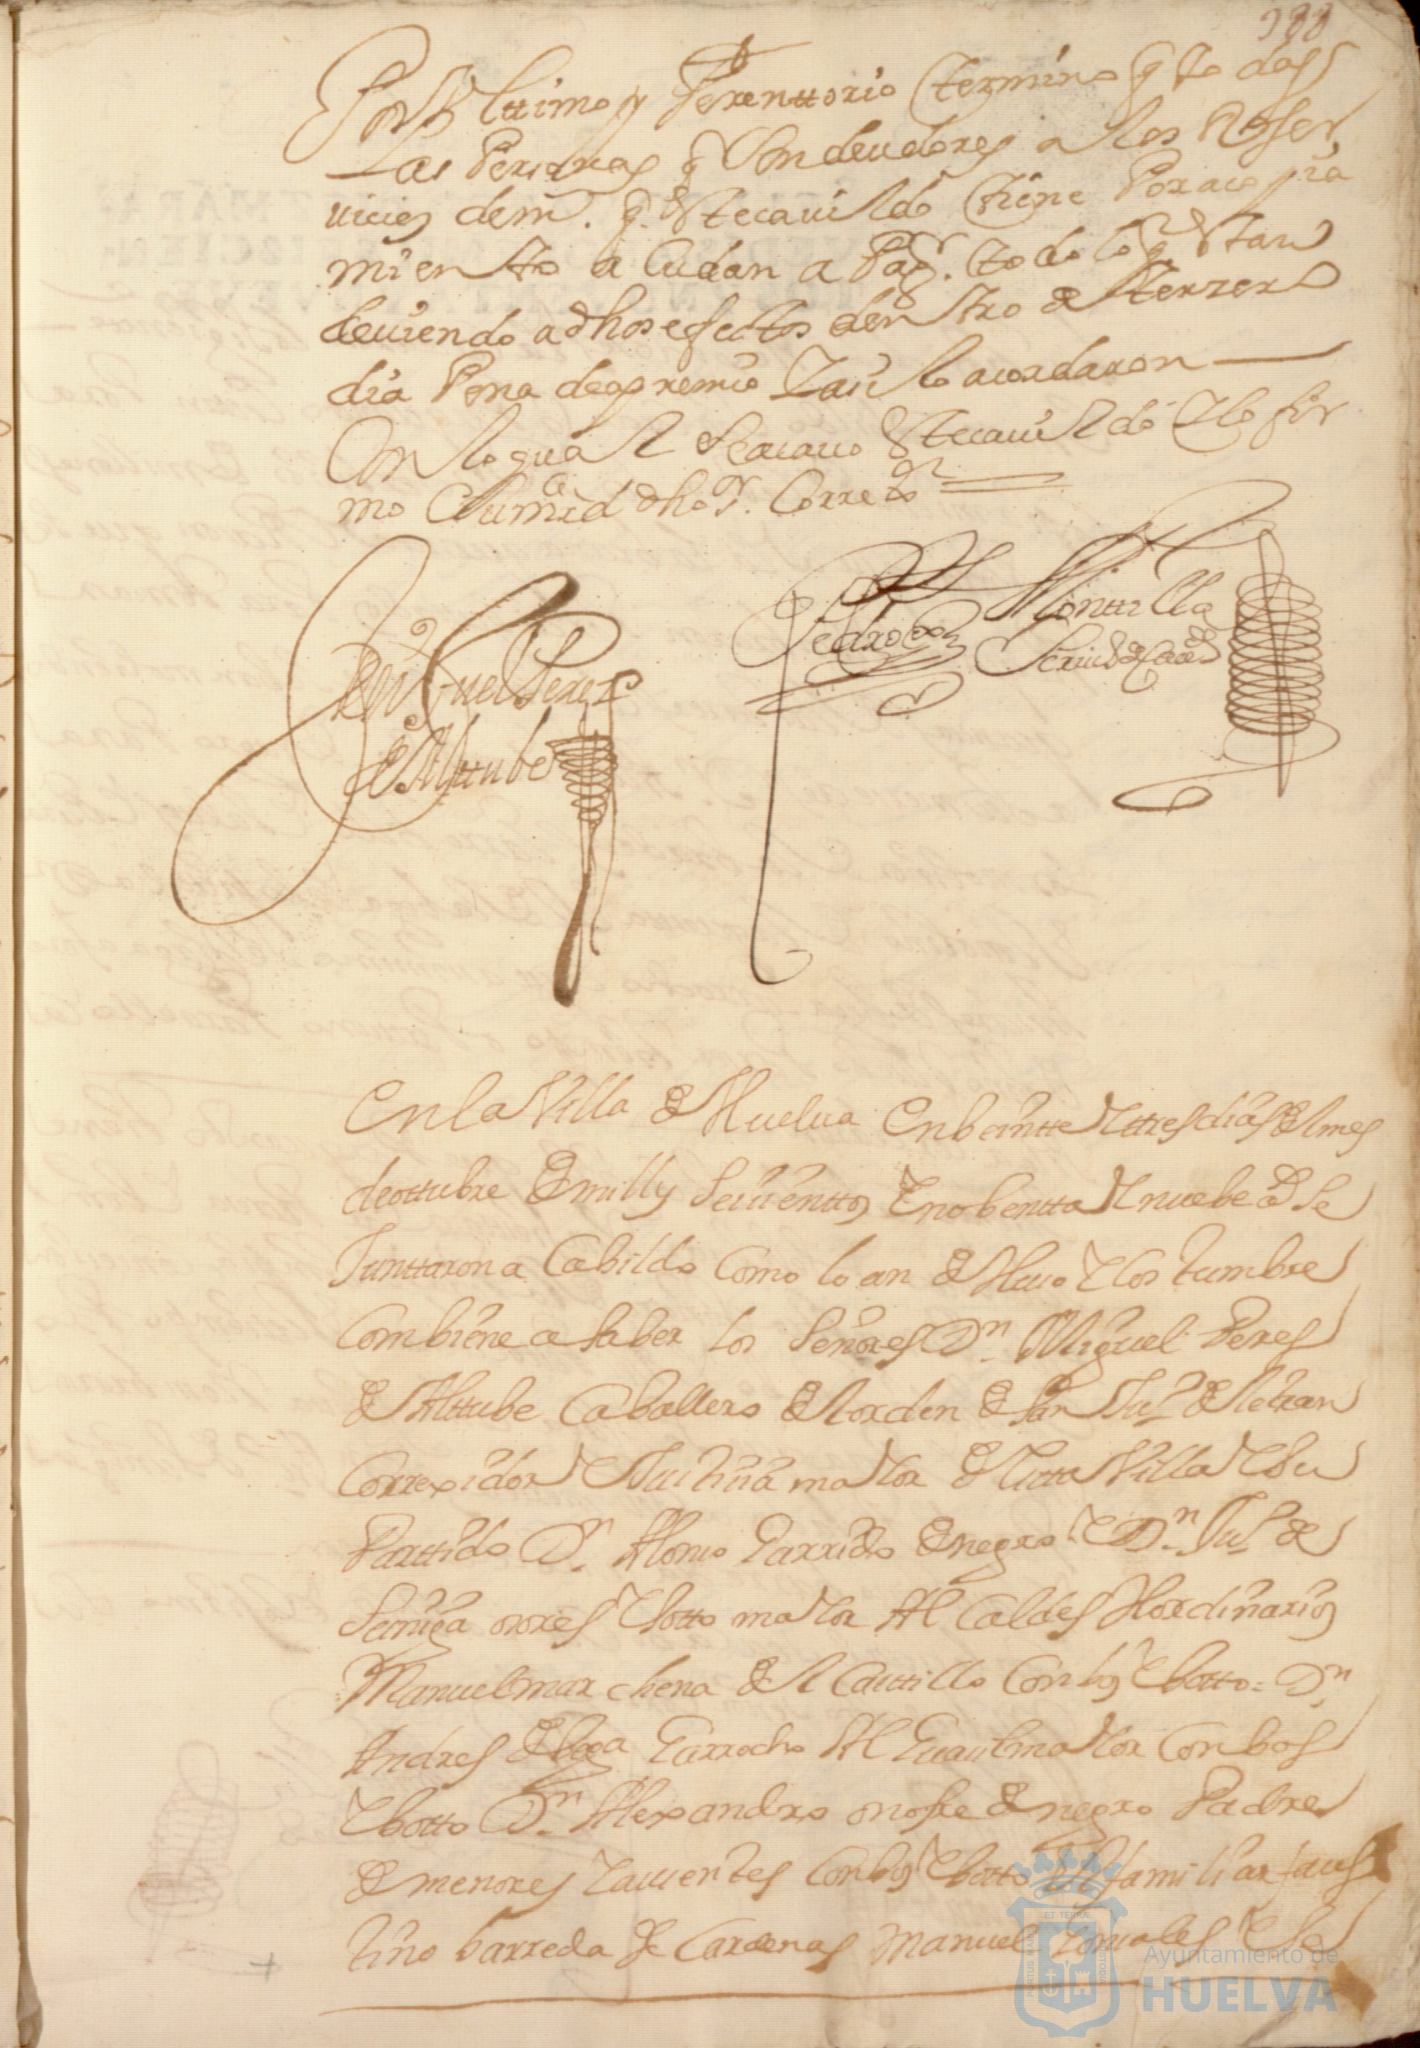 188
Por Vlttimo y Perenttorio termino q todas
Las Personas q son deudores a los Reser
uicios de m. q. estecauildo tiene Por acopia
miento acudan a Pag.r todo lo q estan
deuiendo adhos efectos dentro de terzero
dia Pena de apremio Y asi lo acordaron
Con lo qual Seacauo estecauildo Y lo fir
mo Su mrd dho Sr. Correxor
Miguel Perez
de Alttube
Pedro Monttilla
Scriu de Caudo
En la Villa de Huelua en beintte Y tres dias del mes
de ottubre de mill y Seiscientos Y nobentta Y nuebe as Se
Junttaron a Cabildo Como lo an de Huso Y Costumbre
Combiene a saber los Señores Dn. Miguel Peres
de Alttube Caballero del orden de San Jun de letran
Correxidor Y Justicia maior de esta Villa Y Su
Partido Dn. Alonso Garrido de negro Y Dn. Jun de
Seruiga ores Y botto maior Alcaldes Hordinarios
Manuel marchena del Casttillo Con bos Y botto = Dn.
Andres de bega Garrocho Alguasil maior Con bos
Y botto Dn. Alexandro onofre de negro Padre
de menores Y ausentes Con bos Y botto El familiar faus
tino barreda de Cardenas Manuel Gonsales Y Se
Ayuntamiento de
HUELVA